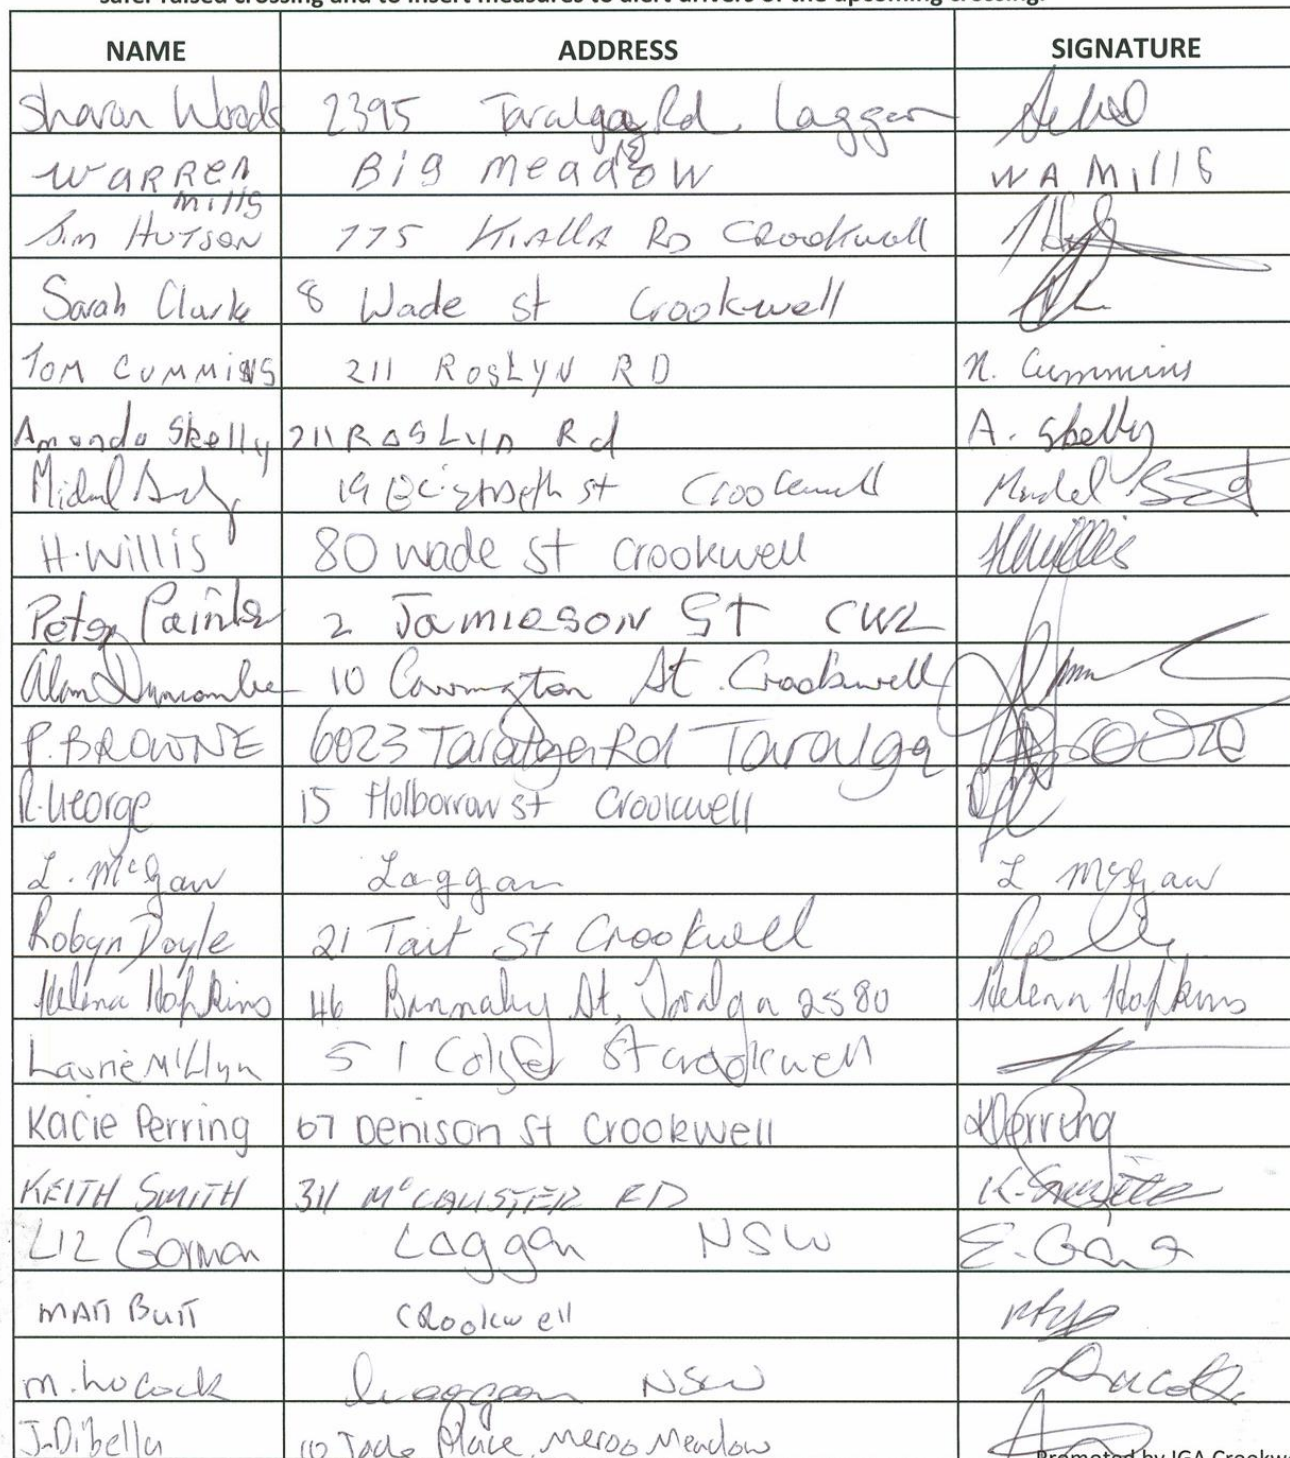 safer raised crossing and to insert measures to alert drivers of the upcoming crossing.
NAME ADDRESS SIGNATURE
Sharan Woods 2395 Taralga Rd. Laggan
WARREN Mills Big meadow WA Mills
Jim HUTSON 775 KIALLA RD CROOKwell
Sarah Clarke 8 Wade st Crookwell
TOM CUMMINS 211 ROSLYN RD N. Cummins
Amanda Skelly 211 ROSLYN Rd A. Skelly
19 st Crookwell
H.Willis 80 wade st crookwell HWillis
Peter Painter 2 JAMIESON ST CWL
Alan Duncombe 10 Carrington St. Crookwell
P.BROWNE 6023 Taralga Rd Taralga
R.George 15 Holborrow st Crookwell
L. McGaw Laggan L McGaw
Robyn Doyle 21 Tait St Crookwell
Helena Hopkins 46 Bannaby St, Taralga 2580 Helena Hopkins
Laurie 51 st crookwell
Kacie Perring 67 Denison st crookwell KPerring
KEITH SMITH 311 McCALISTER RD K. Smith
LIZ Gorman Laggan NSW
MATT BUTT CRookwell
m. Lucock Laggan NSW
J.Dibella Place, Meroo Meadow
Promoted by IGA Crookw